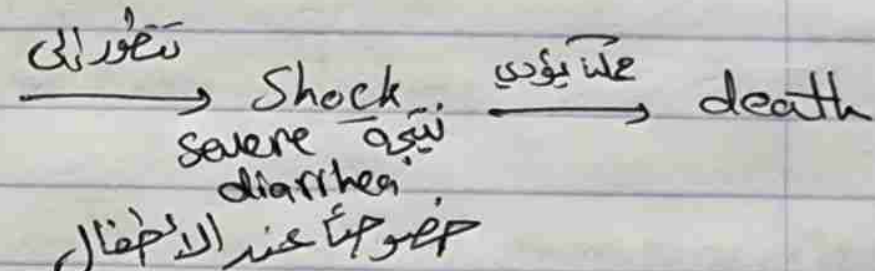 تتطور إلى → Shock ممكن يؤدي → death
نتيجة severe
diarrhea
خصوصاً عند الاطفال